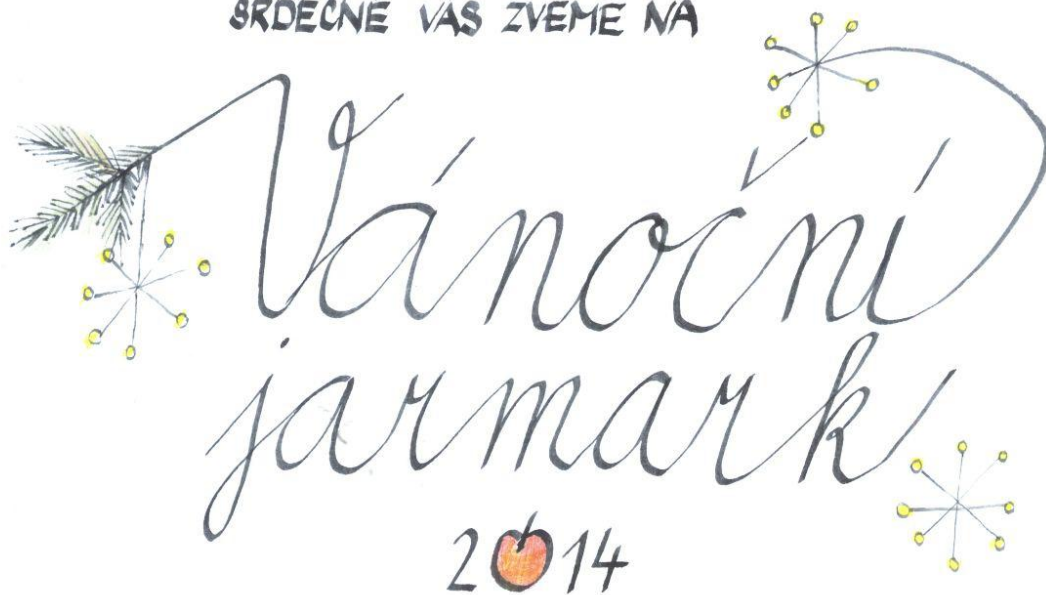 SRDEČNE VÁS ZVEME NA
Vánoční
jarmark
2014